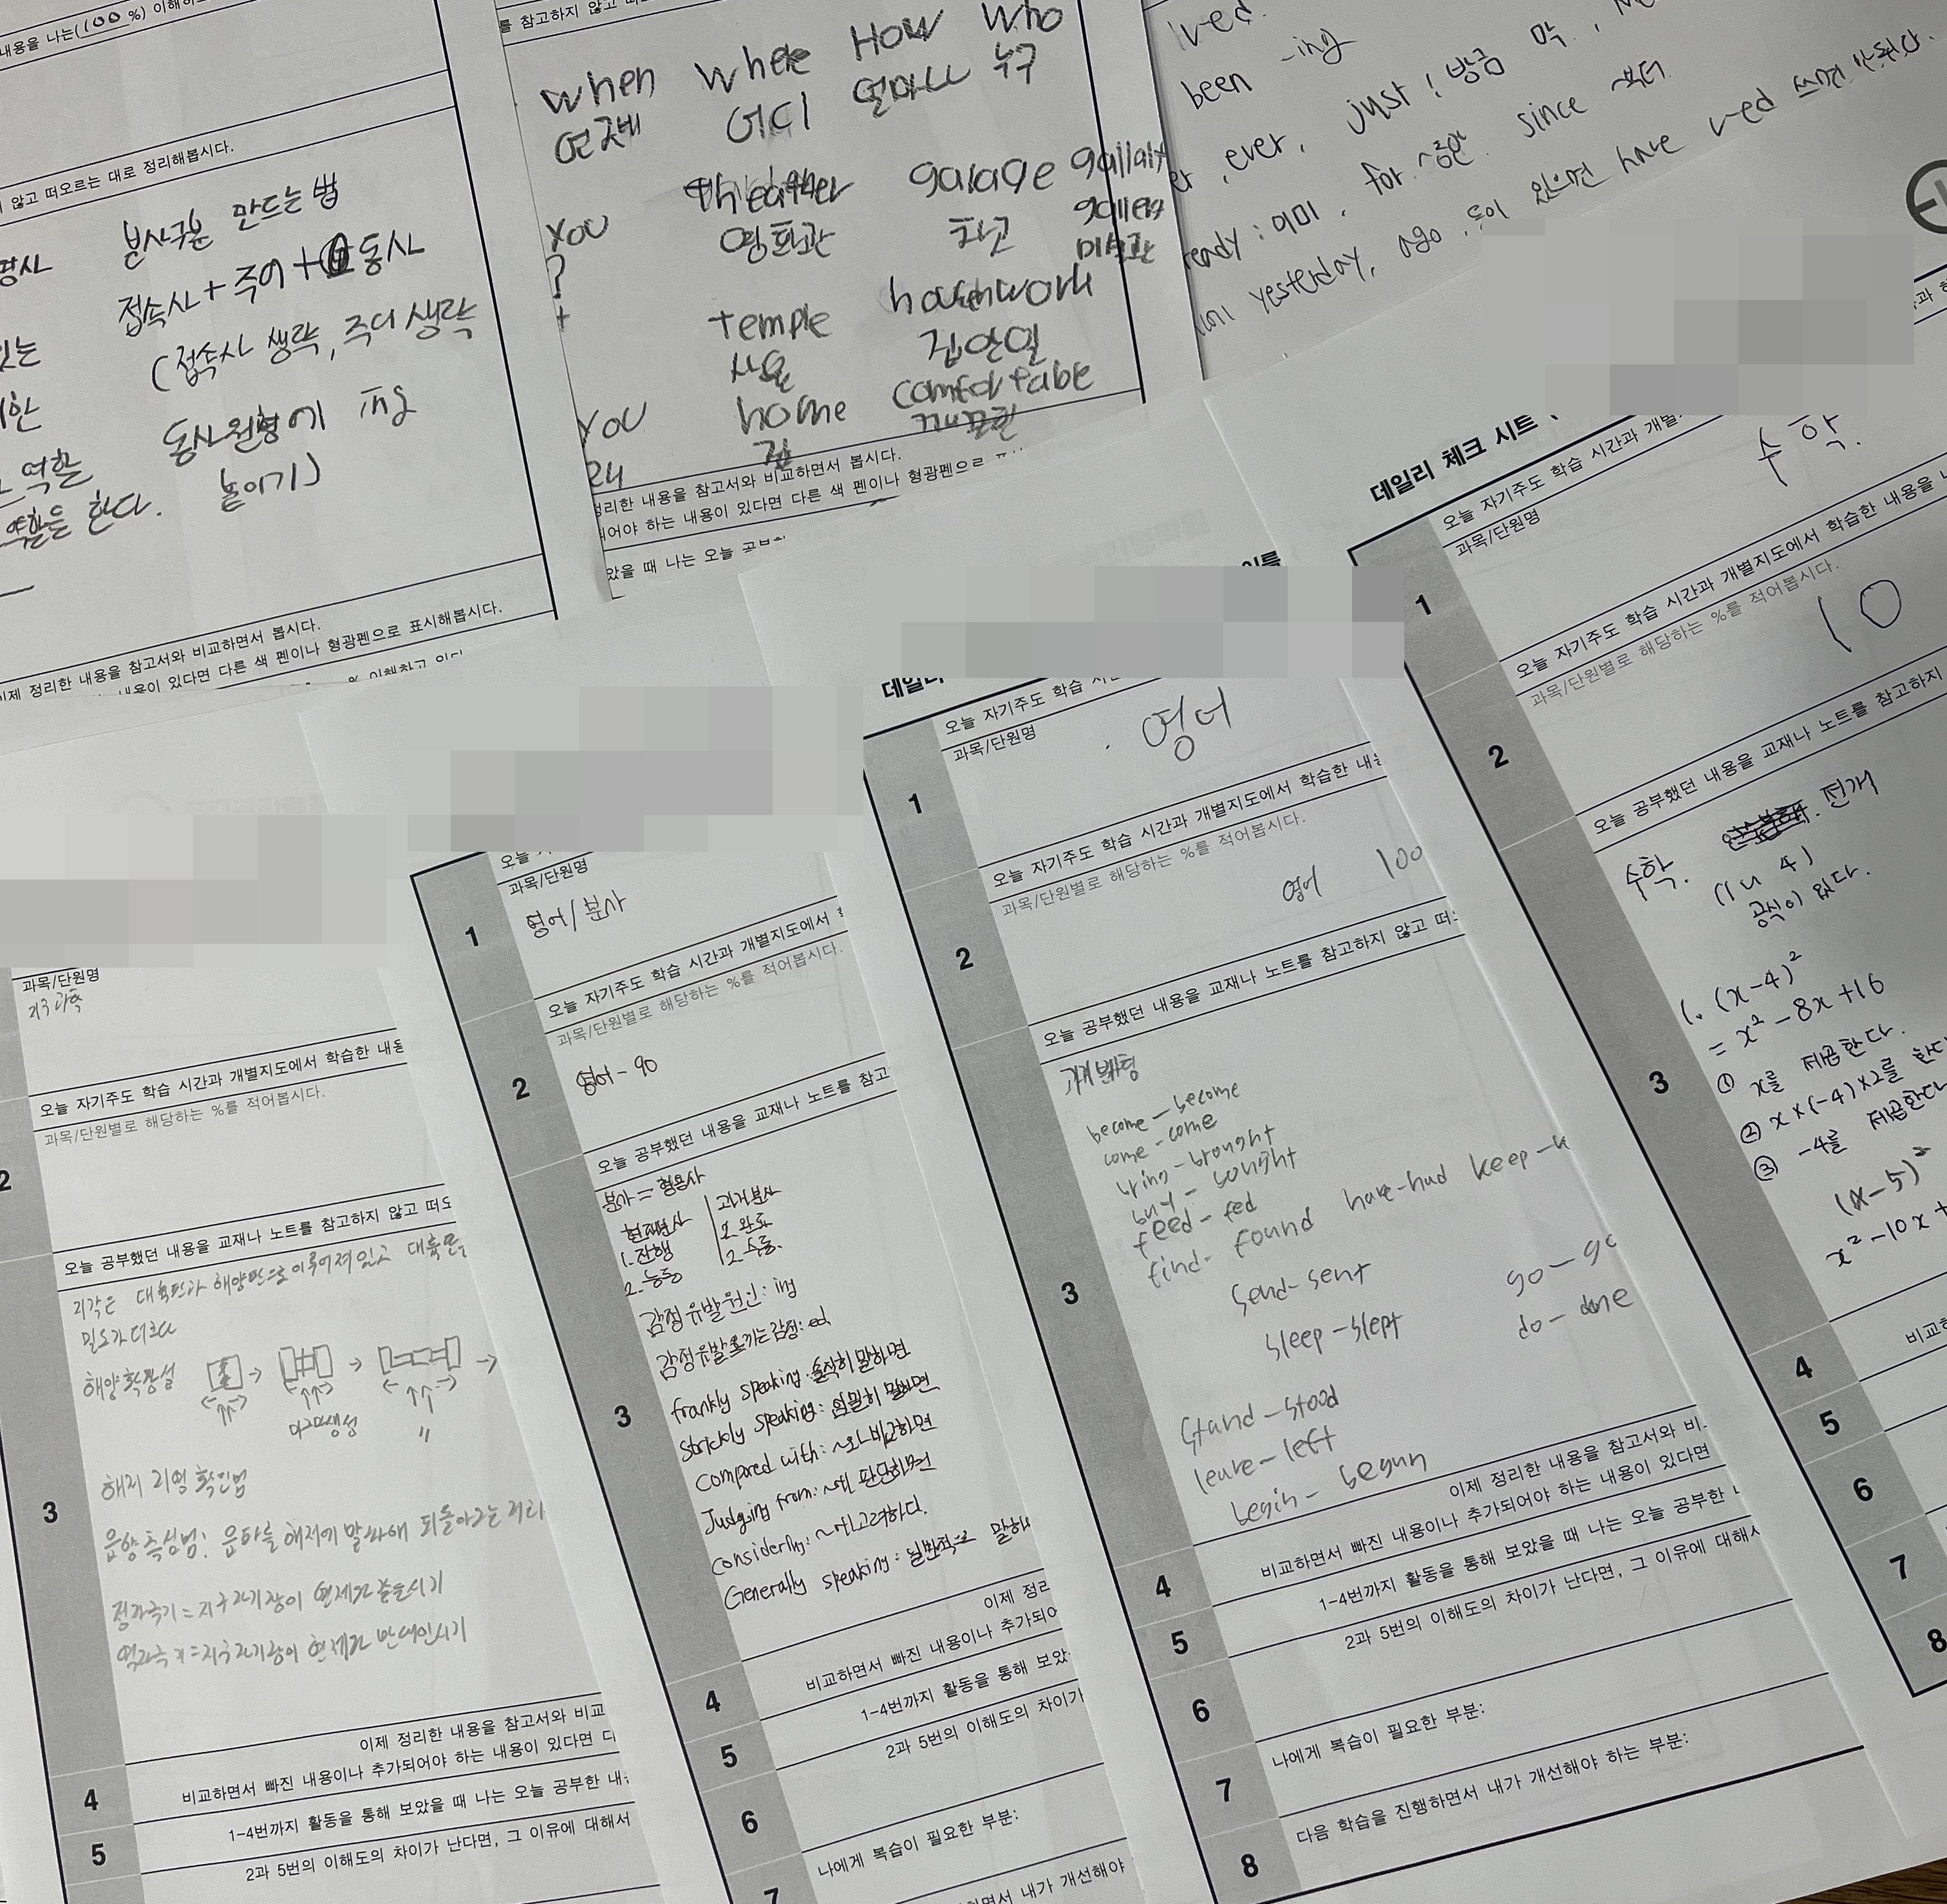 내용을 나는(100 %) 이해하
않고 떠오르는 대로 정리해봅시다.
분사구문 만드는 법
접속사 + 주어 + 동사
(접속사 생략, 주어 생략
동사원형에 ing
붙이기)
역할
역할을 한다.
이제 정리한 내용을 참고서와 비교하면서 봅시다.
내용이 있다면 다른 색 펜이나 형광펜으로 표시해봅시다.
를 참고하지 않고
when where How who
언제 어디 얼마나 누구
theather garage
영화관 차고 미술관
You
?
+
temple housework
사원 집안일
You home comfortable
집
정리한 내용을 참고서와 비교하면서 봅시다.
되어야 하는 내용이 있다면 다른 색 펜이나 형광펜으로
았을 때 나는 오늘
been -ing
ever, just : 방금 막,
ready : 이미, for ~동안 since ~부터
yesterday, ago, 등이 있으면 have v-ed 쓰면 안된다.
데일리 체크 시트
1
오늘 자기주도 학습 시간과 개별
과목/단원명
수학.
2
오늘 자기주도 학습 시간과 개별지도에서 학습한 내용을
과목/단원별로 해당하는 %를 적어봅시다.
10
3
오늘 공부했던 내용을 교재나 노트를 참고하지
수학. 전개
공식이 있다.
1. (x-4)²
= x² - 8x + 16
① x를 제곱한다.
② x×(-4)×2를 한다
③ -4를 제곱한다
(x-5)²
x² - 10x +
4
비교하
5
6
7
8
데일리
1
오늘 자기주도 학습 시
과목/단원명
영어
2
오늘 자기주도 학습 시간과 개별지도에서 학습한 내용
과목/단원별로 해당하는 %를 적어봅시다.
영어 100
3
오늘 공부했던 내용을 교재나 노트를 참고하지 않고 떠오
become - become
come - come
bring - brought
buy - bought
feed - fed
find - found have-had keep-k
send - sent go - go
sleep - slept do - done
stand - stood
leave - left
begin - begun
4
이제 정리한 내용을 참고서와 비
비교하면서 빠진 내용이나 추가되어야 하는 내용이 있다면
5
1-4번까지 활동을 통해 보았을 때 나는 오늘 공부한
6
2과 5번의 이해도의 차이가 난다면, 그 이유에 대해서
7
나에게 복습이 필요한 부분:
8
다음 학습을 진행하면서 내가 개선해야 하는 부분:
1
과목/단원명
영어/분사
2
오늘 자기주도 학습 시간과 개별지도에서
과목/단원별로 해당하는 %를 적어봅시다.
영어 - 90
3
오늘 공부했던 내용을 교재나 노트를 참고
분사 = 형용사
현재분사 과거분사
1. 진행 1. 완료
2. 능동 2. 수동.
감정 유발 원인 : ing
감정 유발 느끼는 감정 : ed
frankly speaking : 솔직히 말하면
strickly speaking : 엄밀히 말하면
compared with : ~와 비교하면
Judging from : ~로 판단하면
considering : ~고려하다.
Generally speaking : 일반적으로 말하면
4
이제 정리
비교하면서 빠진 내용이나 추가되어
5
1-4번까지 활동을 통해 보았
6
2과 5번의 이해도의 차이가
7
나에게 복습이 필요한 부분:
하면서 내가 개선해야
과목/단원명
지구과학
2
오늘 자기주도 학습 시간과 개별지도에서 학습한 내용
과목/단원별로 해당하는 %를 적어봅시다.
3
오늘 공부했던 내용을 교재나 노트를 참고하지 않고 떠오
지각은 대륙판과 해양판으로 이루어져 있고 대륙판
밀도가 더크다
해양 확장설
마그마생성
"
해저 지형 확인법
음향 측심법: 음파를 해저에 발사해 되돌아오는
정자극기 = 지구 자기장이 현제와 같은시기
역자극기 = 지구 자기장이 현제와 반대인시기
4
이제 정리한 내용을 참고서와 비교
비교하면서 빠진 내용이나 추가되어야 하는 내용이 있다면 다
5
1-4번까지 활동을 통해 보았을 때 나는 오늘 공부한 내용
2과 5번의 이해도의 차이가 난다면, 그 이유에 대해서